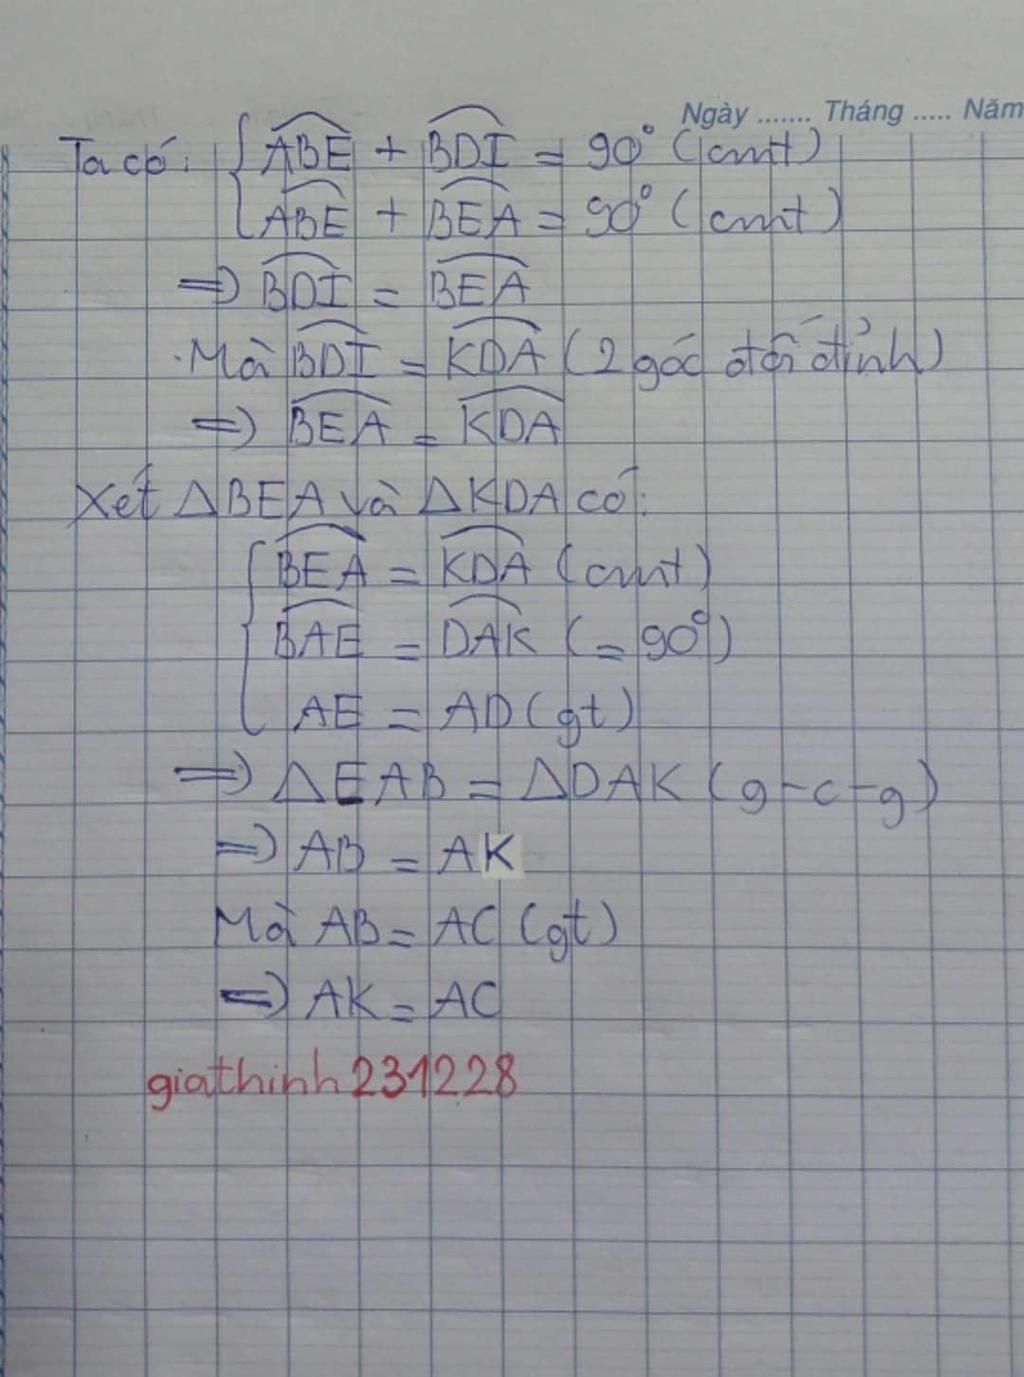 Ngày ....... Tháng ..... Năm
Ta có: { ABE + BDI = 90° (cmt)
ABE + BEA = 90° (cmt)
=> BDI = BEA
Mà BDI = KDA (2 góc đối đỉnh)
=> BEA = KDA
Xét ΔBEA và ΔKDA có:
{ BEA = KDA (cmt)
BAE = DAK (= 90°)
AE = AD (gt)
=> ΔEAB = ΔDAK (g-c-g)
=> AB = AK
Mà AB = AC (gt)
=> AK = AC
giathinh231228